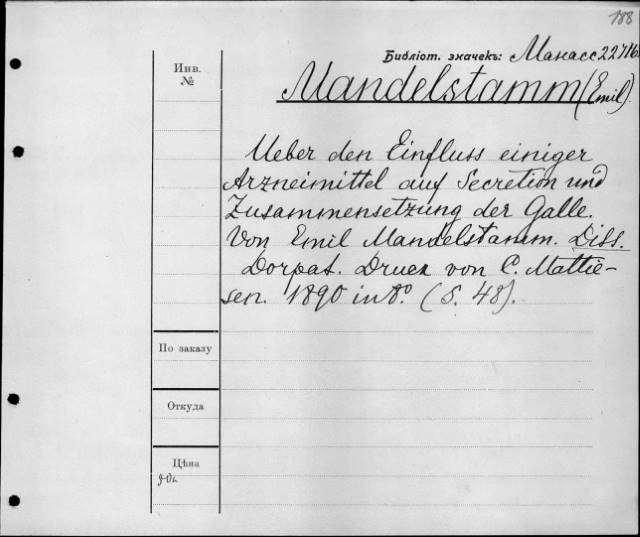 188
Библіот. значекъ: Манасс 22716
Инв.
№
Mandelstamm (Emil).
Ueber den Einfluss einiger
Arzneimittel auf Secretion und
Zusammensetzung der Galle.
Von Emil Mandelstamm. Diss.
Dorpat. Druck von C. Mattie-
sen. 1890 in 8º. (S. 48).
По заказу
Откуда
Цѣна